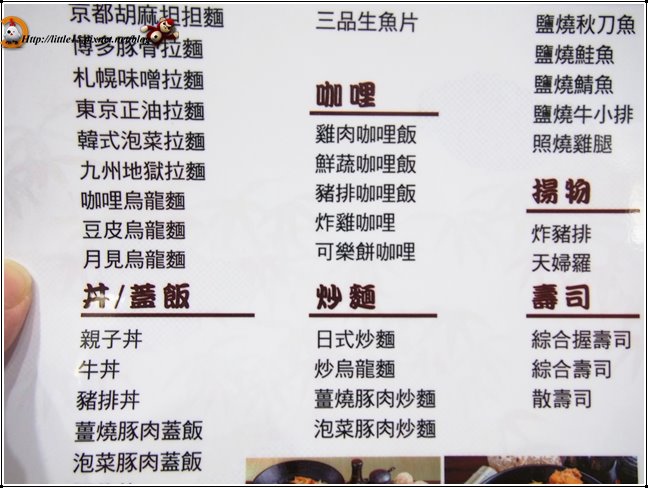 京都胡麻担担麵
博多豚骨拉麵
札幌味噌拉麵
東京正油拉麵
韓式泡菜拉麵
九州地獄拉麵
咖哩烏龍麵
豆皮烏龍麵
月見烏龍麵
丼/蓋飯
親子丼
牛丼
豬排丼
薑燒豚肉蓋飯
泡菜豚肉蓋飯
三品生魚片
咖哩
雞肉咖哩飯
鮮蔬咖哩飯
豬排咖哩飯
炸雞咖哩
可樂餅咖哩
炒麵
日式炒麵
炒烏龍麵
薑燒豚肉炒麵
泡菜豚肉炒麵
鹽燒秋刀魚
鹽燒鮭魚
鹽燒鯖魚
鹽燒牛小排
照燒雞腿
揚物
炸豬排
天婦羅
壽司
綜合握壽司
綜合壽司
散壽司